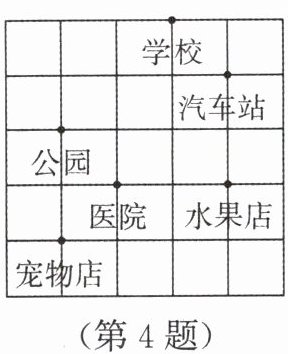 学校
汽车站
公园
医院 水果店
宠物店
(第 4 题)